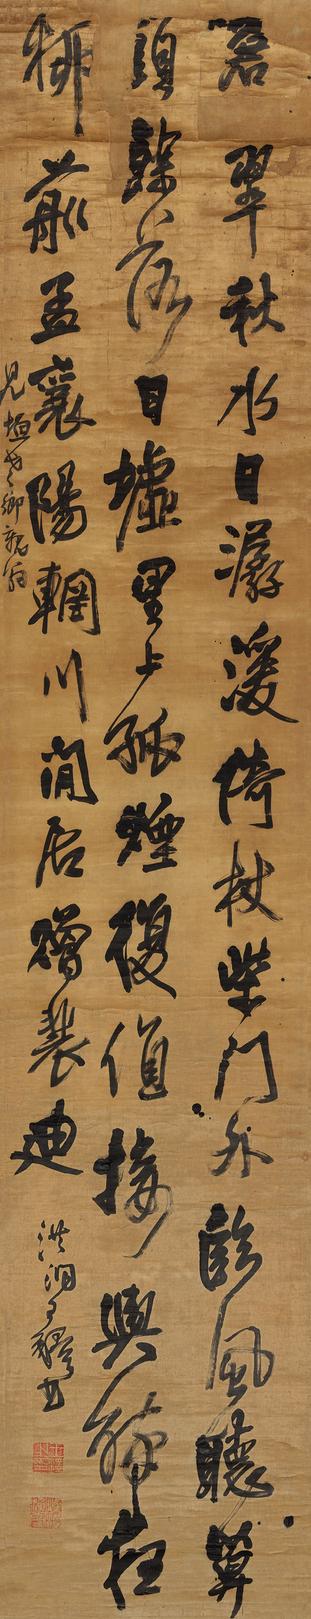 蒼翠秋水日潺湲倚杖柴門外臨風聽暮
頭餘落日墟里上孤煙復值接輿醉狂
柳前孟襄陽輞川閒居贈裴迪
洪洞王鐸書
見垣老鄉親翁